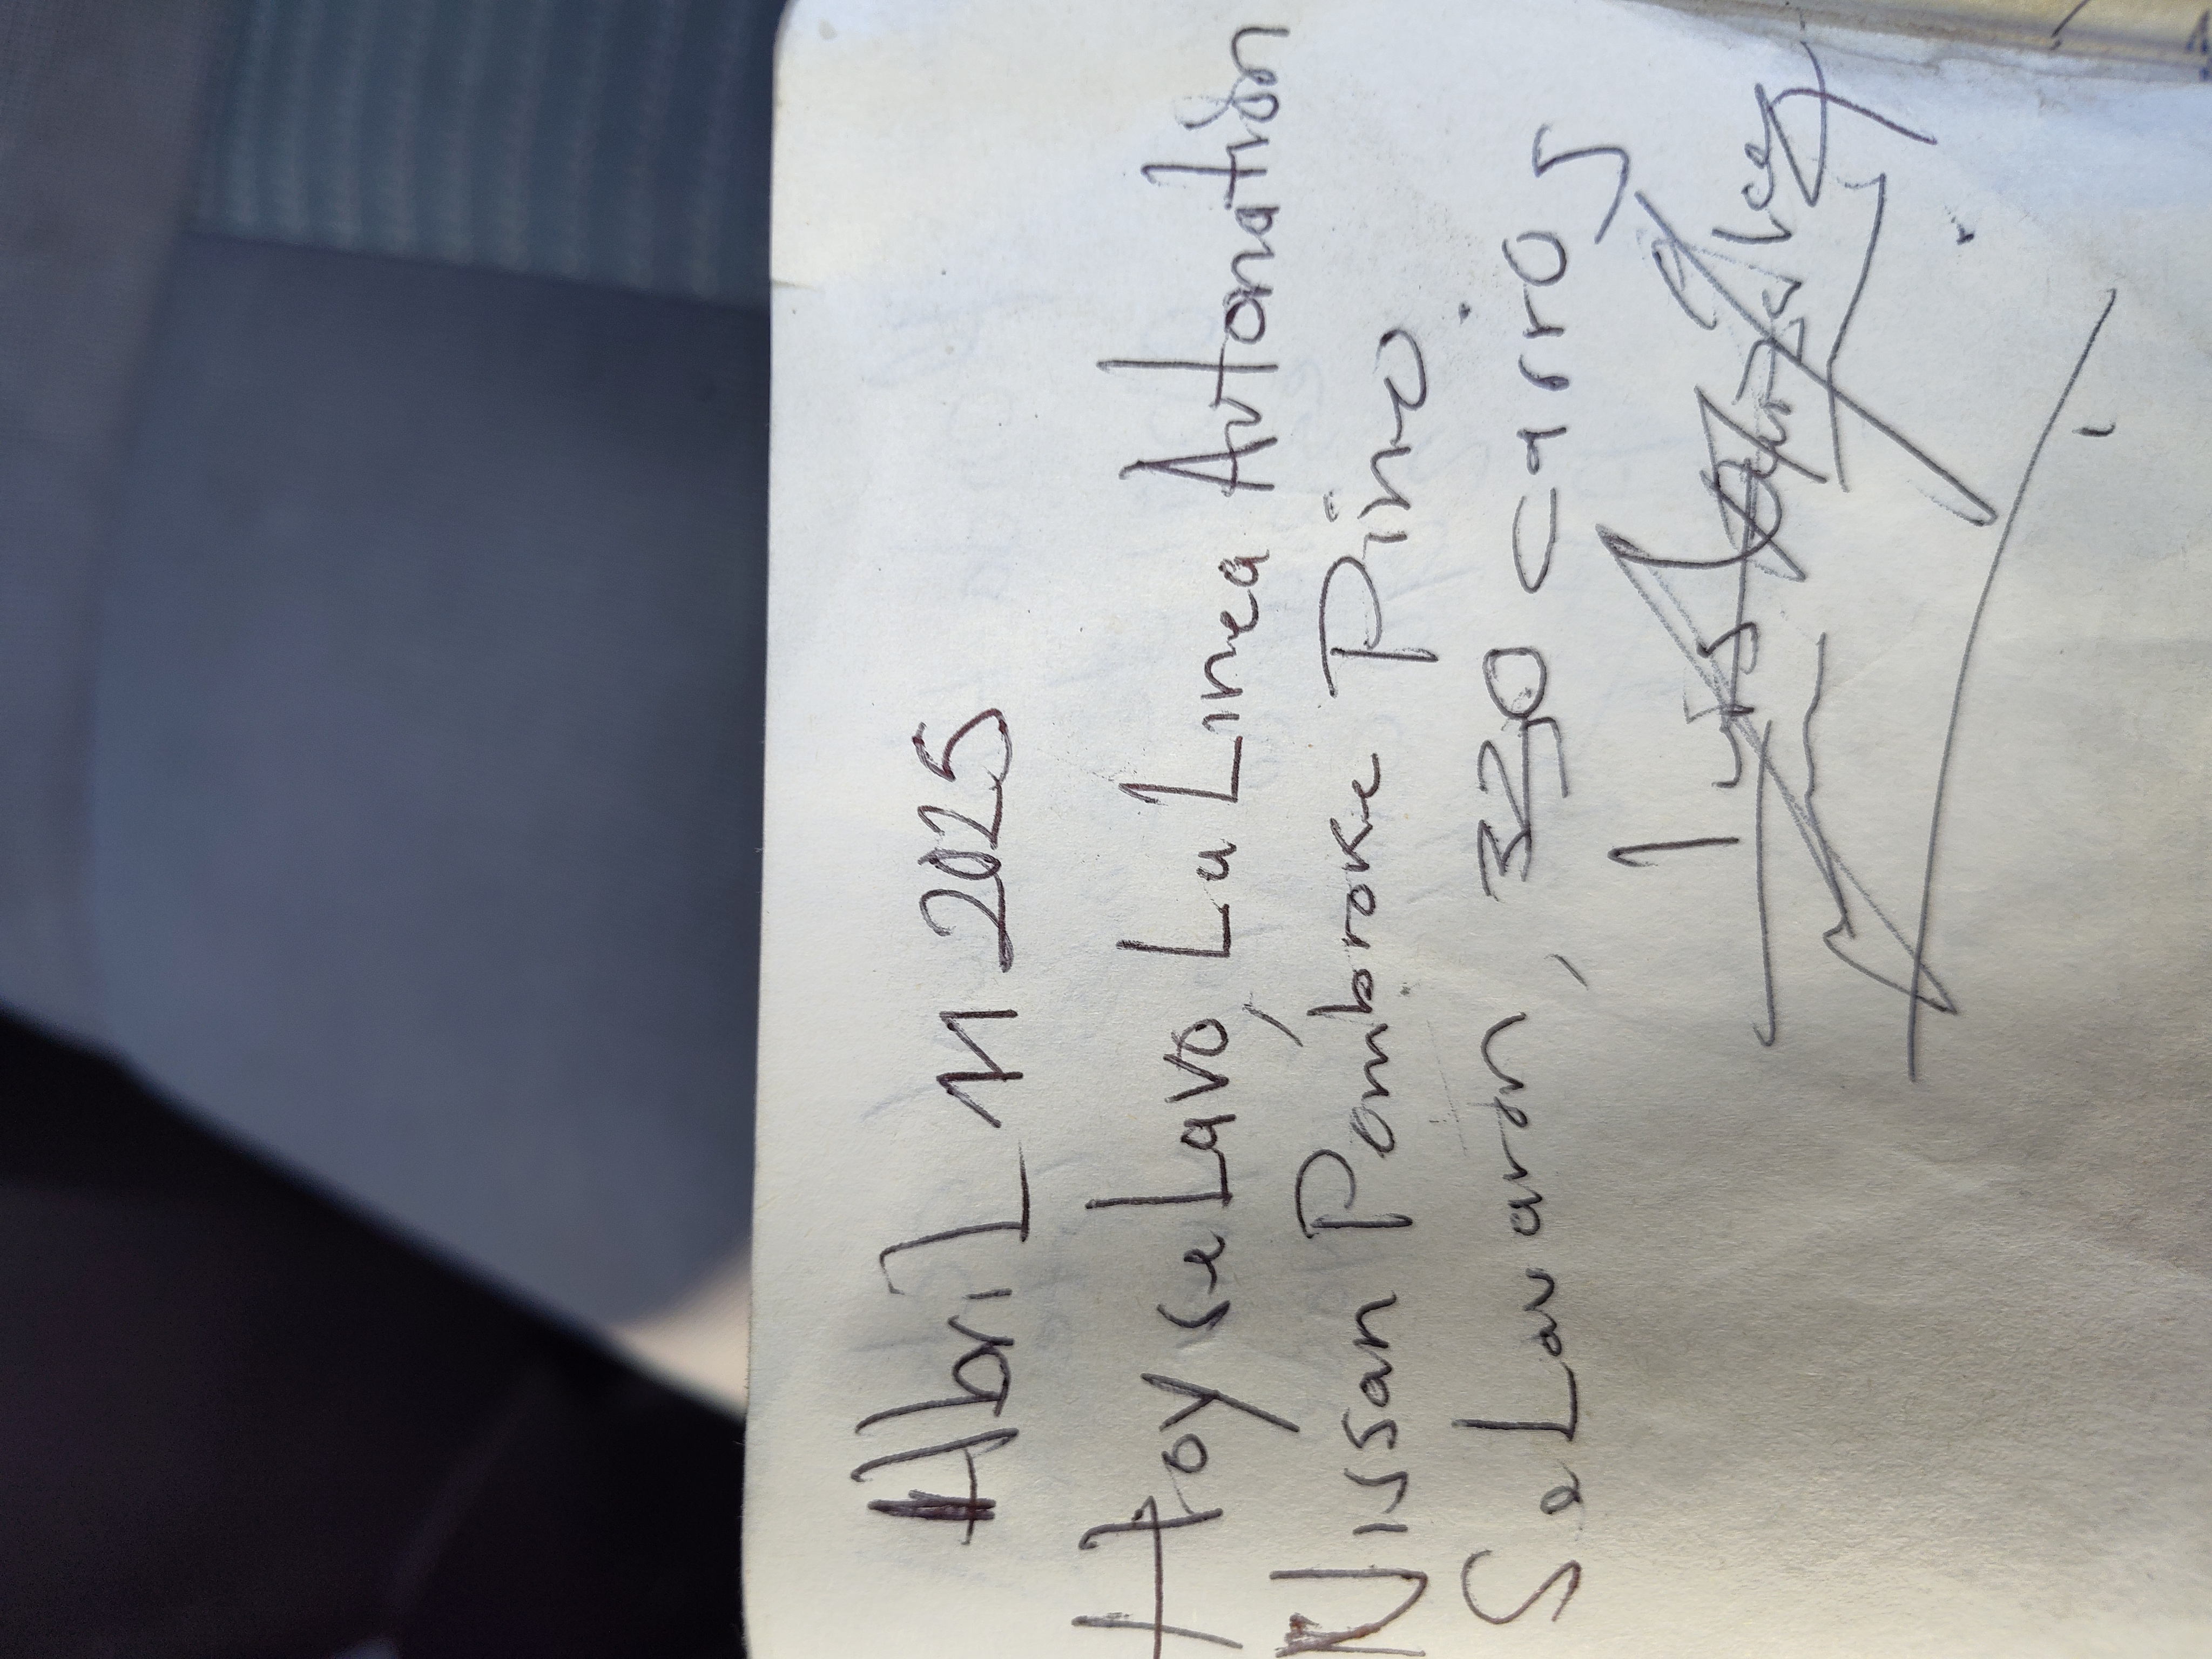 Abril 11 2025
Hoy se Lavo, La Linea Autonation
Nissan Pembroke Pino
Se Lavaron, 320 carros